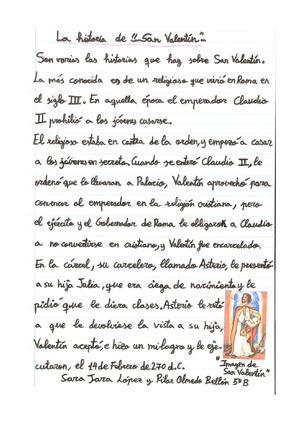 La historia de "San Valentín".
Son varias las historias que hay sobre San Valentín.
La más conocida es de un religioso que vivió en Roma en
el siglo III. En aquella época el emperador Claudio
II prohibió a los jóvenes casarse.
El religioso estaba en contra de la orden, y empezó a casar
a los jóvenes en secreto. Cuando se enteró Claudio II, le
ordenó que lo llevaran a Palacio, Valentín aprovechó para
convencer al emperador en la religión cristiana, pero
el ejército y el Gobernador de Roma le obligaron a Claudio
a no convertirse en cristiano, y Valentín fue encarcelado.
En la cárcel, su carcelero, llamado Asterio, le presentó
a su hija Julia, que era ciega de nacimiento y le
pidió que le diera clases. Asterio le retó
a que le devolviese la vista a su hija,
Valentín aceptó, e hizo un milagro y le eje-
cutaron, el 14 de Febrero de 270 d.C.
"Imagen de
San Valentín"
Sara Jara López y Pilar Olmedo Bellón 5º B